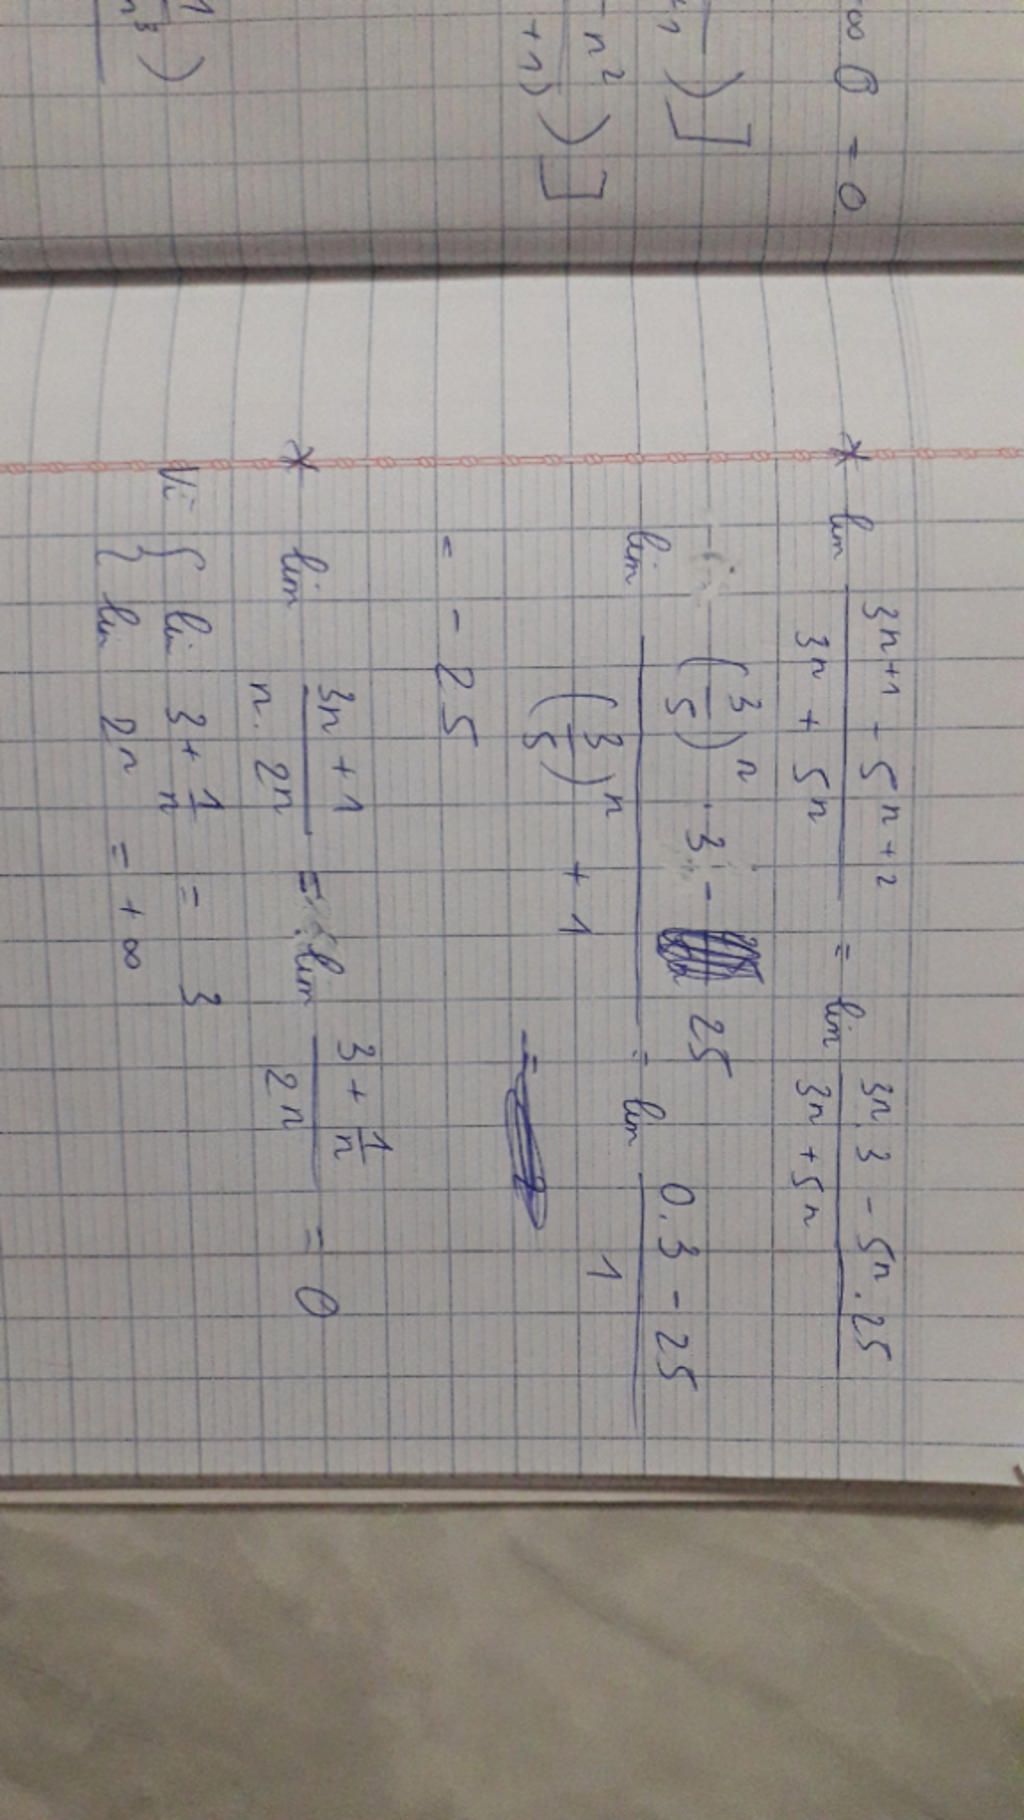 ∞ 0 = 0
+1 ) ]
- n²
+1) ) ]
1
n³ )
* lim (3ⁿ⁺¹ - 5ⁿ⁺²)/(3ⁿ + 5ⁿ) = lim (3ⁿ.3 - 5ⁿ.25)/(3ⁿ + 5ⁿ)
lim ((3/5)ⁿ . 3 - 25)/((3/5)ⁿ + 1) = lim (0.3 - 25)/1
=
= - 25
* lim (3n + 1)/(n . 2ⁿ) = lim (3 + 1/n)/(2ⁿ) = 0
Vì { lim 3 + 1/n = 3
{ lim 2ⁿ = + ∞